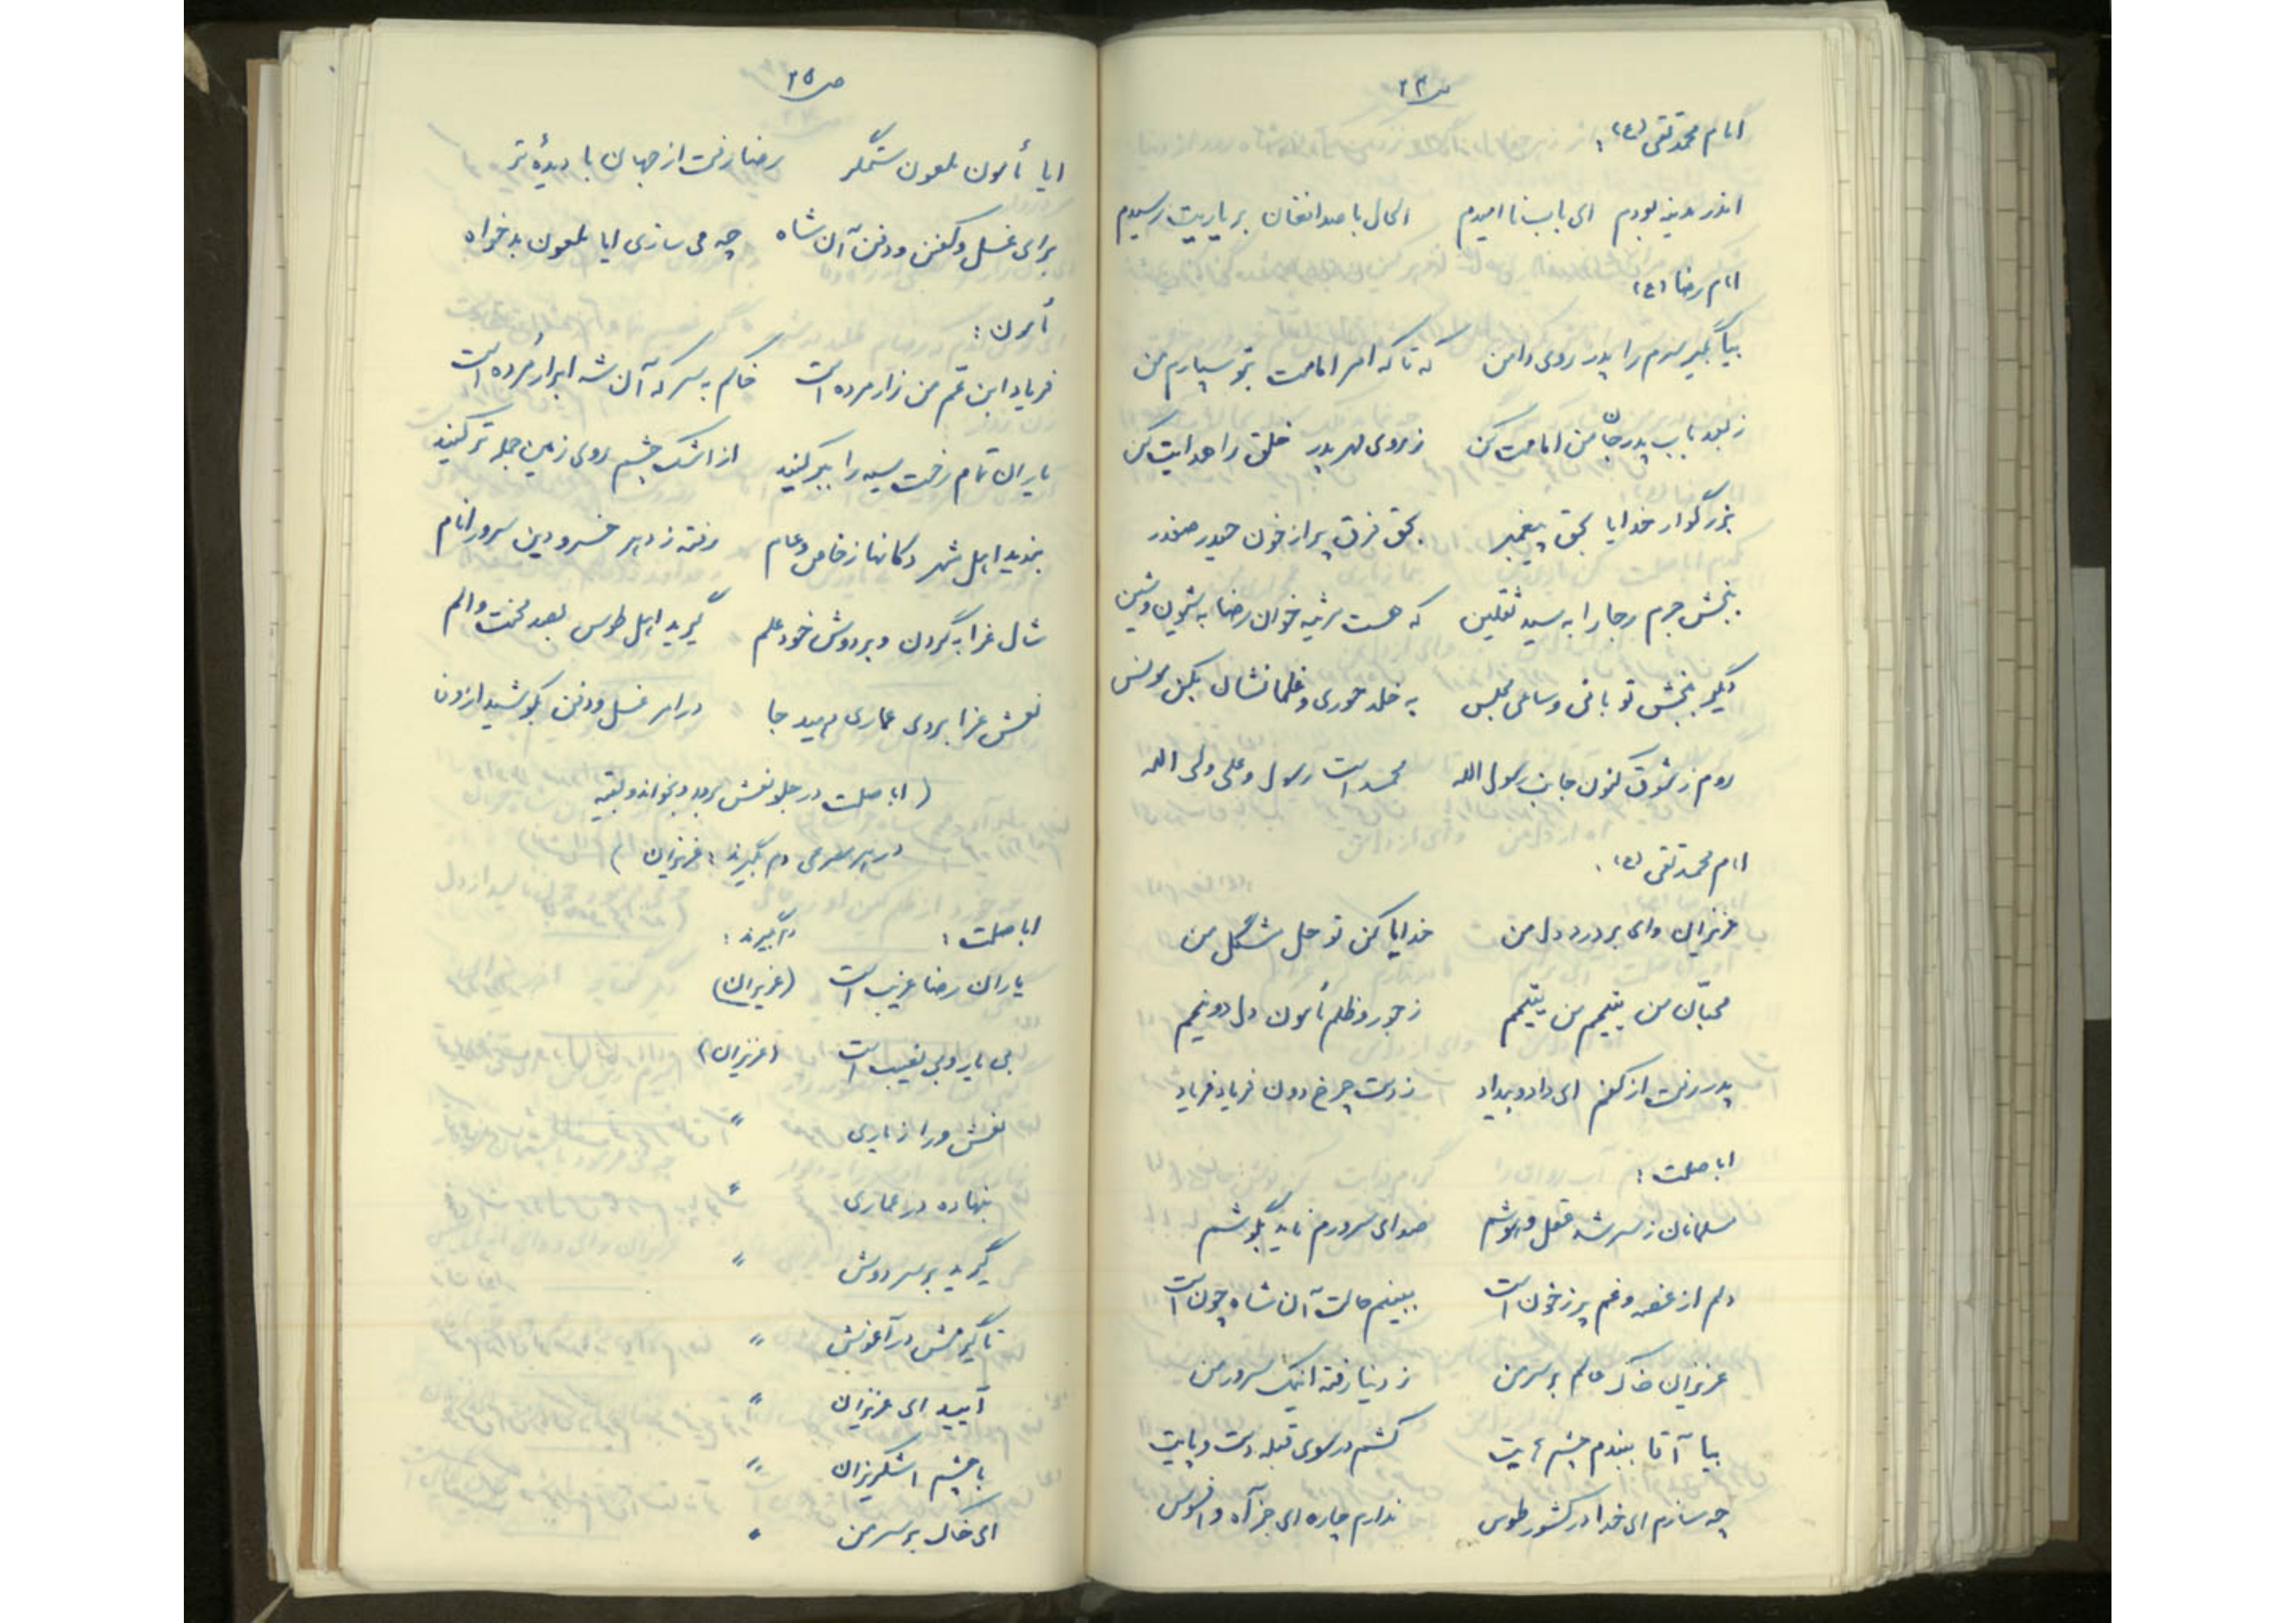 ص ۲۴
امام محمد تقی (ع):
اندر مدینه بودم ای باب نا امیدم الحال با صد افغان بر یاریت رسیدم
امام رضا (ع)
بیا بگیر سرم را پدر روی دامن که تا که امر امامت بتو سپارم من
ز بعد باب پدر جان من امامت کن ز روی مهر پدر خلق را هدایت کن
بزرگوار خدایا بحق پیغمبر بحق فرق پر از خون حیدر صفدر
ببخش جرم رجا را به سید ثقلین که هست مرثیه خوان رضا به شیون و شین
دگیر ببخش تو بانی و ساعی مجلس به خلد حوری و غلمانشان بکن مونس
روم ز شوق کنون جانب رسول الله محمد است رسول و علی ولی الله
امام محمد تقی (ع):
عزیزان وای بر درد دل من خدایا کن تو حل مشگل من
محبّان من یتیمم من یتیمم ز جور و ظلم مأمون دل دو نیمم
پدر رفت از کفم ای داد و بیداد ز دست چرخ دون فریاد فریاد
ابا صلت:
مسلمانان ز سر شد عقل و هوشم صدای سرورم ناید بگوشم
دلم از غصه و غم پر ز خون است ببینم حالت آن شاه چون است
عزیزان خاک عالم بر سر من ز دنیا رفته اینک سرور من
بیا آقا ببندم چشمهایت کشم در سوی قبله دست و پایت
چه سازم ای خدا در کشور طوس ندارم چاره ای جز آه و افسوس
ص ۲۵
ایا مأمون ملعون ستمگر رضا رفت از جهان با دیدهٔ تر
برای غسل و کفن و دفن آن شاه چه می سازی ایا ملعون بدخواه
مأمون:
فریاد ابن عم من زار مرده است خاکم به سر که آن شه ابرار مرده است
یاران تمام رخت سیه را ببر کنید از اشک چشم روی زمین جمله تر کنید
بندید اهل شهر دکانها ز خاص و عام رفته ز دهر خسرو دین سرور انام
شال عزا به گردن و بر دوش خود علم گیرید اهل طوس بصد محنت و الم
نعش عزا بروی عماری دهید جا در امر غسل و دفن بکوشید از وفا
(ابا صلت در جلو نعش برود و بخواند و بقیه
در هر مصرعی دم بگیرند: عزیزان)
ابا صلت: دم گیرند:
یاران رضا غریب است (عزیزان)
بی یار و بی نصیب است (عزیزان)
نعش ورا ز یاری "
بنهاده در عماری "
گیرید بر سر دوش "
تا گیرمش در آغوش "
آیید ای عزیزان "
با چشم اشکریزان "
ای خاک بر سر من "